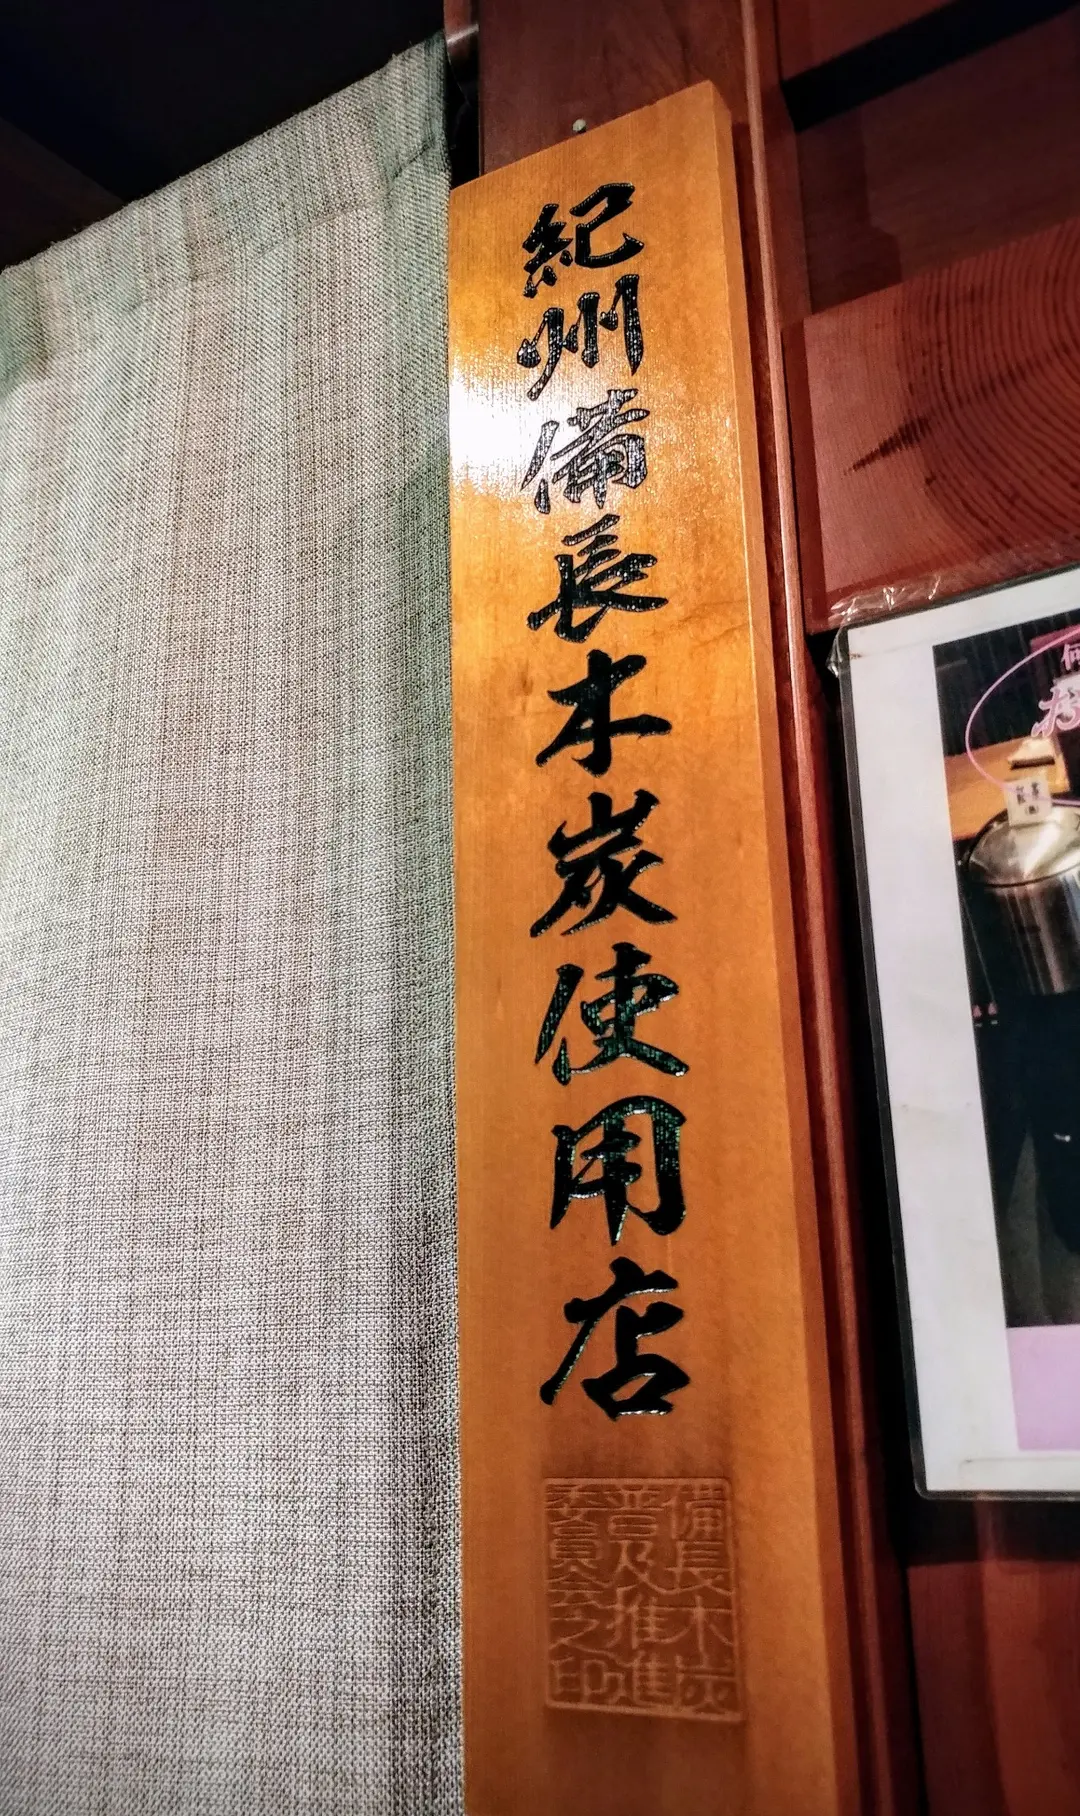 紀州備長木炭使用店
備長木炭
普及推進
委員会之印